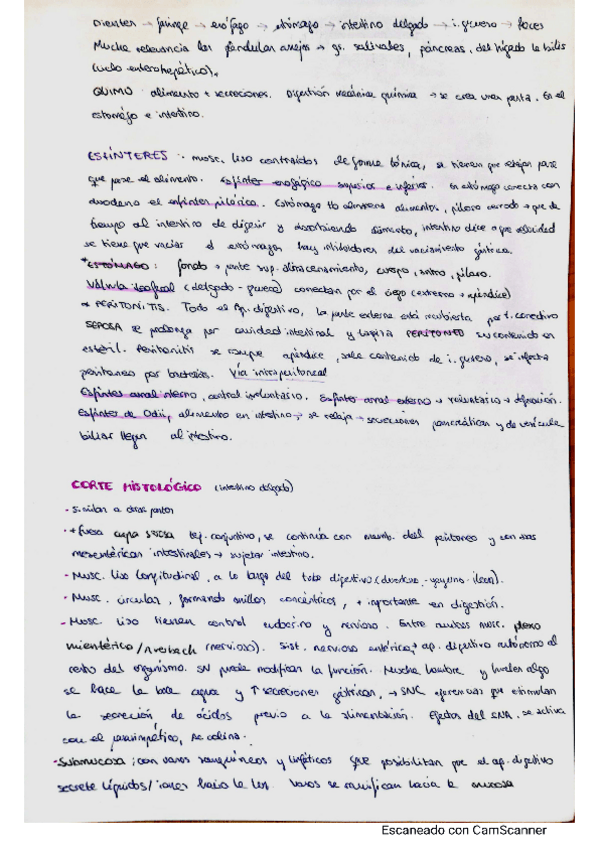 Dientes → faringe → esófago → estómago → intestino delgado → i. grueso → heces
Mucha relevancia las glándulas anejas → gl. salivales, páncreas, del hígado la bilis
(ciclo enterohepático).
QUIMO: alimento + secreciones. Digestión mecánica química → se crea una pasta. En el
estómago e intestino.
ESFÍNTERES: musc. liso contraídos de forma tónica, se tienen que relajar para
que pase el alimento. Esfínter esofágico superior e inferior. En estómago conecta con
duodeno el esfínter pilórico. Estómago almacena alimentos, píloro cerrado → que de
tiempo al intestino de digerir y absorbiendo alimento, intestino dice a que velocidad
se tiene que vaciar el estómago hay inhibidores del vaciamiento gástrico.
*ESTÓMAGO: fondo → parte sup. almacenamiento, cuerpo, antro, píloro.
Válvula ileofecal (delgado - grueso) conectan por el ciego (extremo → apéndice)
* PERITONITIS. Todo el Ap. digestivo, la parte externa está recubierta por t. conectivo
SEROSA se prolonga por cavidad intestinal y tapiza PERITONEO su contenido en
estéril. Peritonitis se rompe apéndice, sale contenido de i. grueso, se infecta
peritoneo por bacterias. Vía intraperitoneal
Esfínter anal interno, control involuntario. Esfínter anal externo → voluntario → defecación.
Esfínter de Oddi, alimento en intestino → se relaja → secreciones pancreáticas y de vesícula
biliar llegan al intestino.
CORTE HISTOLÓGICO (intestino delgado)
- Similar a otras partes
- + fuera capa serosa tej. conjuntivo, se continúa con memb. del peritoneo y con las
mesentéricas intestinales → sujetar intestino.
- Musc. liso longitudinal, a lo largo del tubo digestivo (duodeno - yeyuno - íleon).
- Musc. circular, formando anillos concéntricos, + importante en digestión.
- Musc. liso tienen control endocrino y nervioso. Entre nuestros musc. plexo
mientérico/Auerbach (nervioso). Sist. nervioso entérico → ap. digestivo autónomo al
resto del organismo. SN puede modificar la función. Mucha hambre y hueles algo
se hace la boca agua y ↑ secreciones gástricas, → SNC eferencias que estimulan
la secreción de ácidos previo a la alimentación. Efectos del SNA, se activa
con el parasimpático, Ac colina.
- Submucosa: con vasos sanguíneos y linfáticos que posibilitan que el ap. digestivo
secrete líquidos/iones hacia la luz. Vasos se ramifican hacia la mucosa
Escaneado con CamScanner